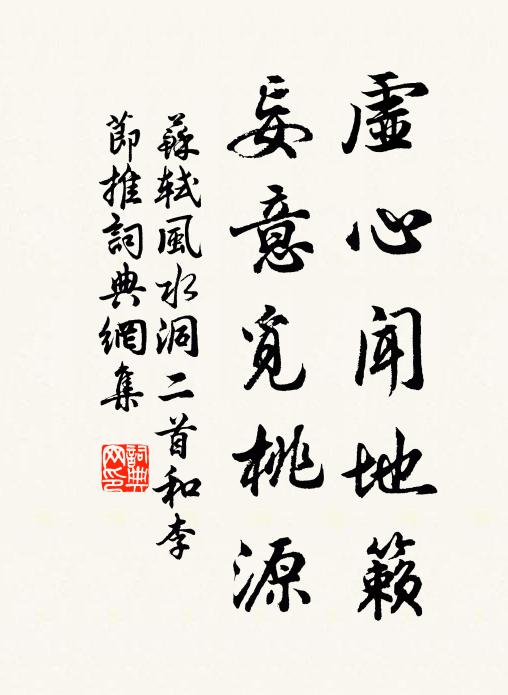 虛心聞地籟
妄意覓桃源
蘇軾風水洞二首和李
節推詞典網集
詞典网印